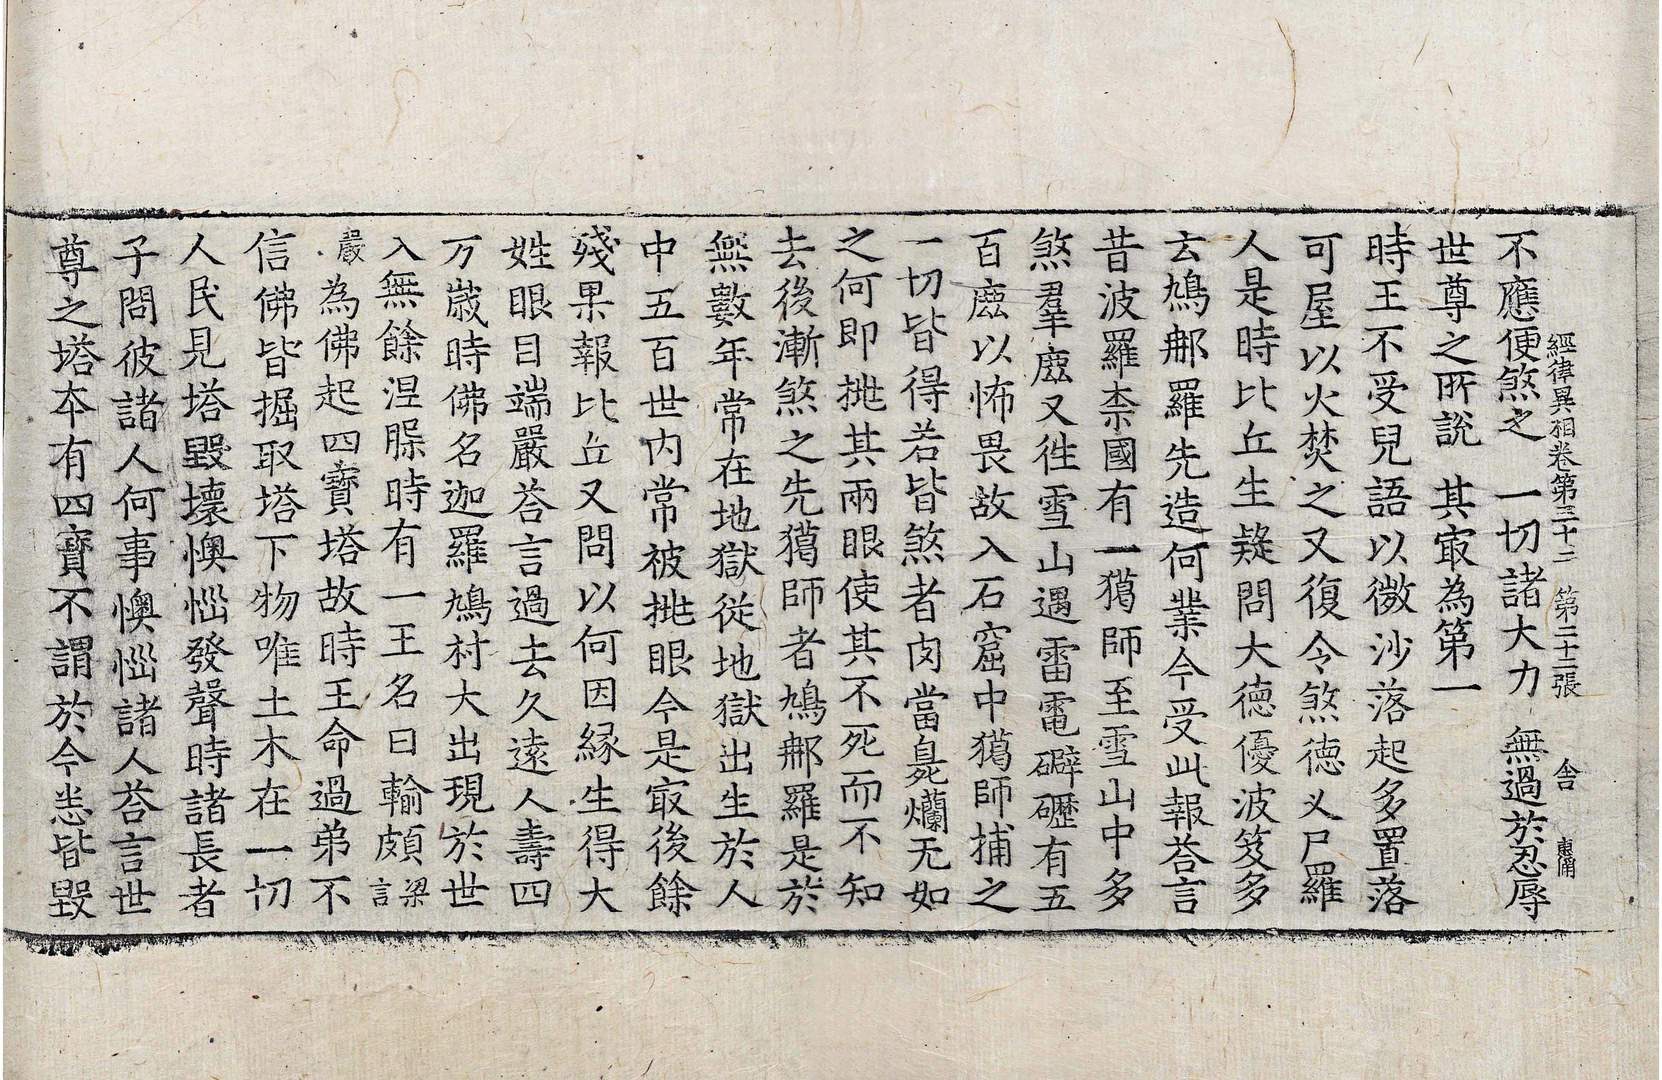 經律異相卷第三十二 第二十二張 舍
不應便煞之 一切諸大力 無過於忍辱
世尊之所說 其㝡為第一
時王不受兒語以微沙落起多置落
可屋以火焚之又復令煞德乂尸羅
人是時比丘生疑問大德優波笈多
言鳩郍羅先造何業今受此報荅言
昔波羅柰國有一獦師至雪山中多
煞羣鹿又徃雪山遇雷電礔礰有五
百鹿以怖畏故入石窟中獦師捕之
一切皆得若皆煞者肉當臰爛无如
之何即挑其兩眼使其不死而不知
去後漸煞之先獦師者鳩郍羅是於
無數年常在地獄從地獄出生於人
中五百世內常被挑眼今是㝡後餘
殘果報比丘又問以何因緣生得大
姓眼目端嚴荅言過去久遠人壽四
万歲時佛名迦羅鳩村大出現於世
入無餘涅槃時有一王名曰輸頗梁言
嚴為佛起四寶塔故時王命過弟不
信佛皆掘取塔下物唯土木在一切
人民見塔毀壞懊惱發聲時諸長者
子問彼諸人何事懊惱諸人荅言世
尊之塔本有四寶不謂於今悉皆毀